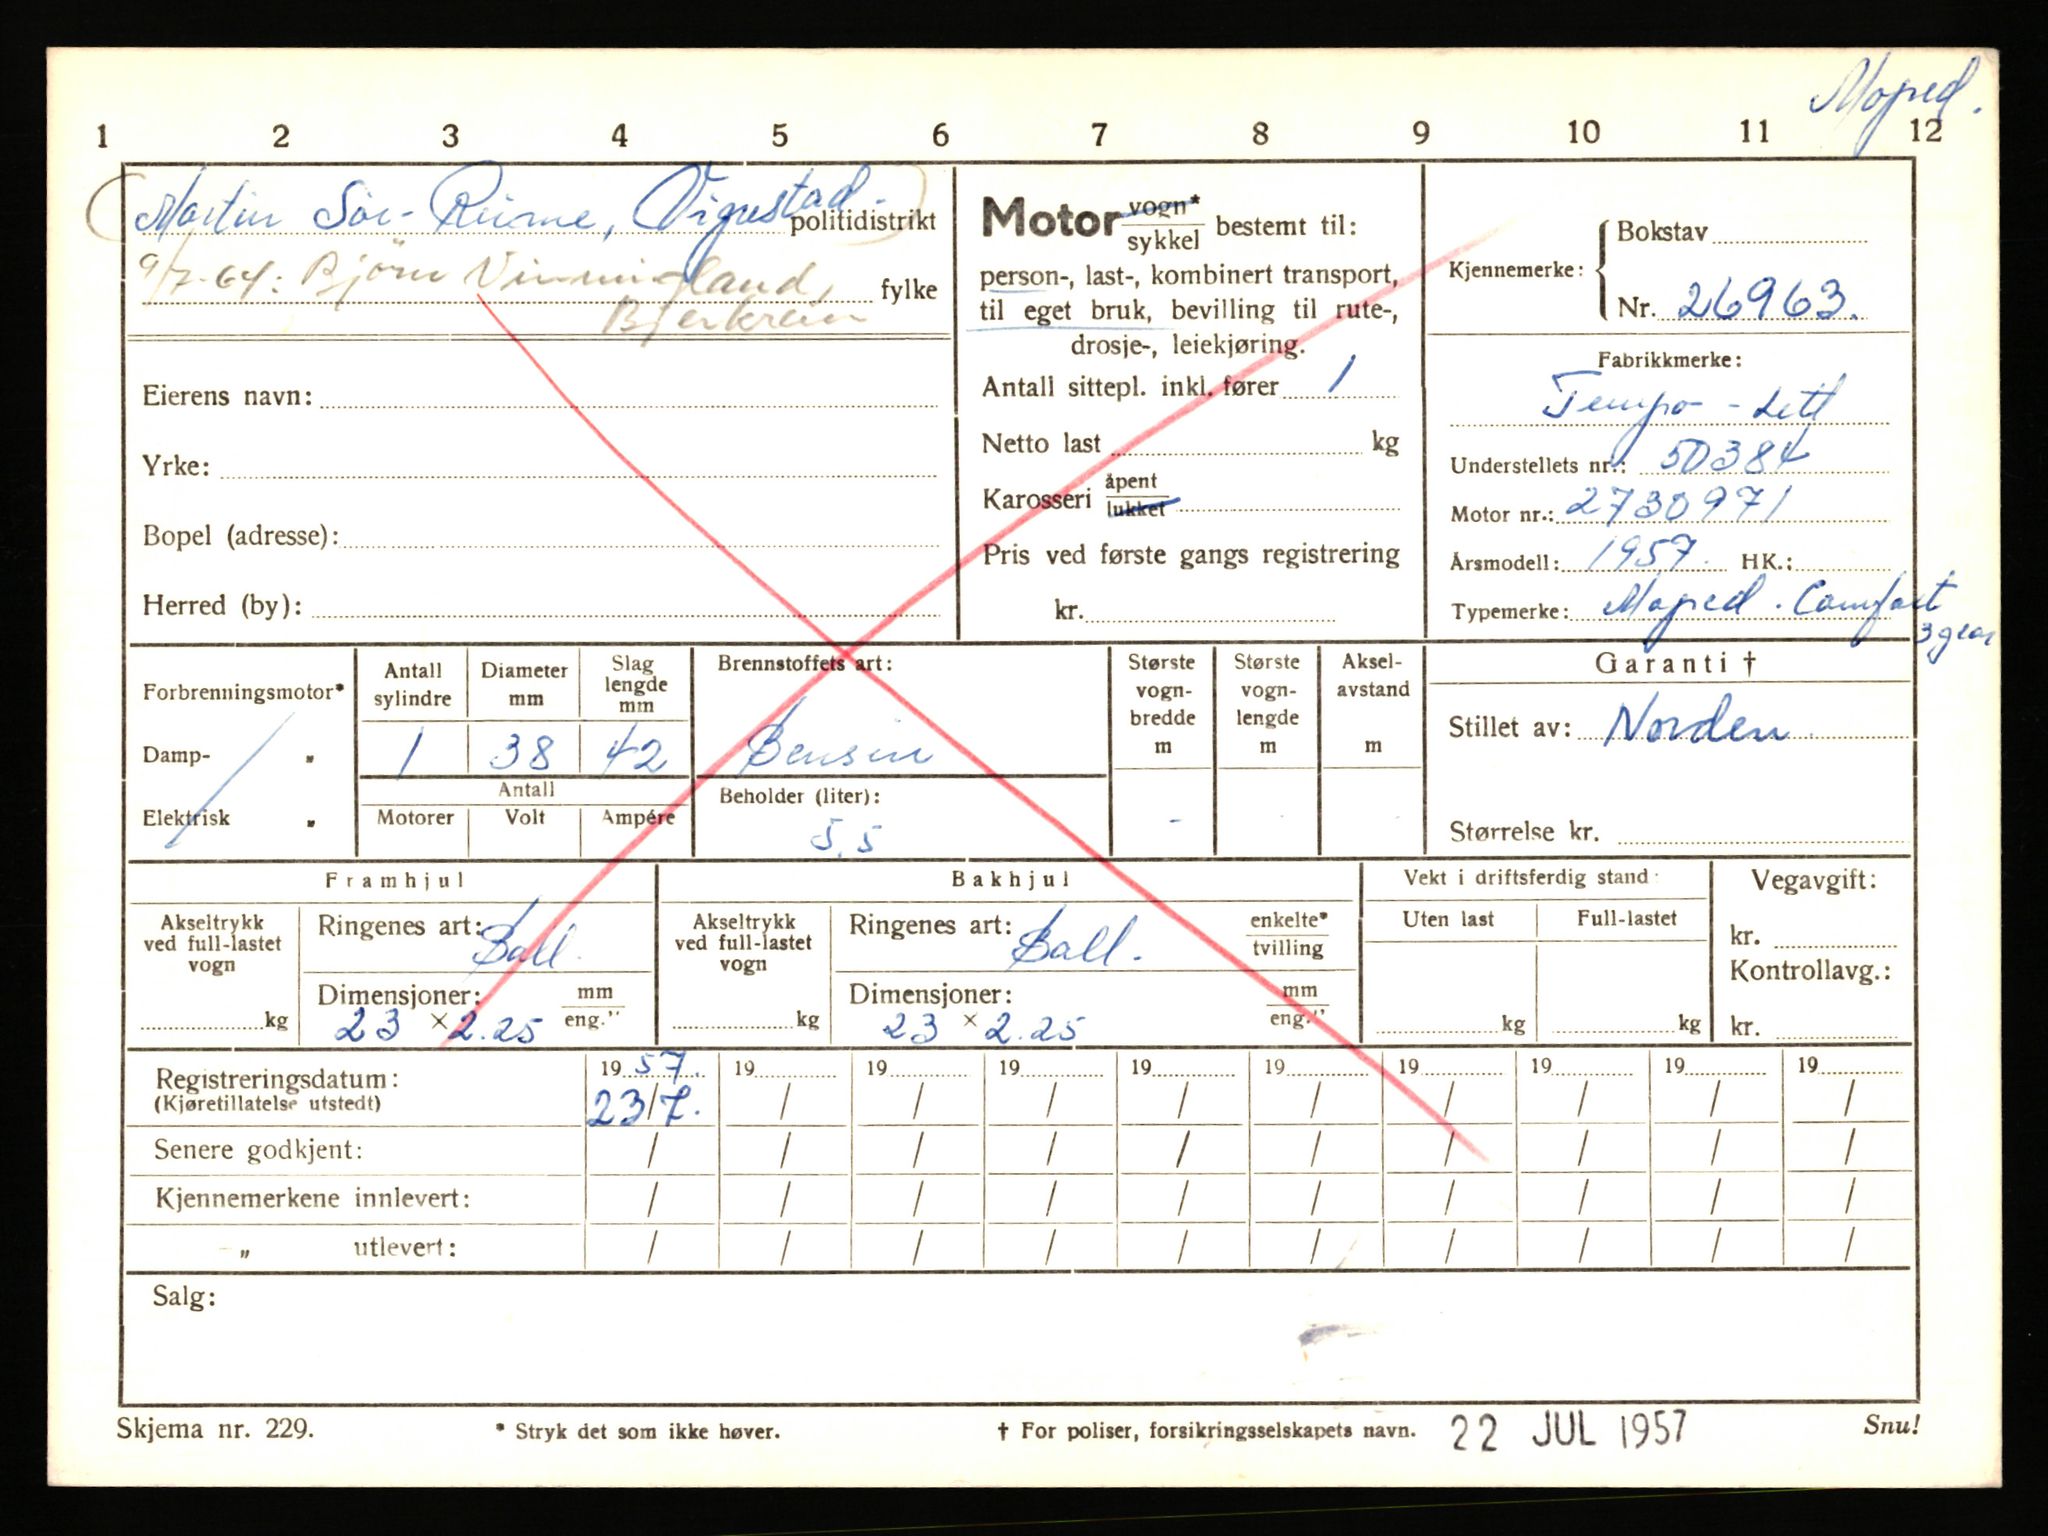 Moped.
1 2 3 4 5 6 7 8 9 10 11 12
Martin Sør-Reime, Vigrestad. politidistrikt
9/7-64: Björn Vinningland, fylke
Bjerkreim
Eierens navn:
Yrke:
Bopel (adresse):
Herred (by):
Motor vogn* / sykkel bestemt til:
person-, last-, kombinert transport,
til eget bruk, bevilling til rute-,
drosje-, leiekjøring.
Antall sittepl. inkl. fører 1
Netto last kg
Karosseri åpent / lukket
Pris ved første gangs registrering
kr.
Kjennemerke: Bokstav
Nr. 26963.
Fabrikkmerke:
Tempo - Lett
Understellets nr.: 50384
Motor nr.: 2730971
Årsmodell: 1957. HK.:
Typemerke: Moped. Comfort
3 gear
Forbrenningsmotor*
Damp- „
Elektrisk „
Antall sylindre
Diameter mm
Slag lengde mm
1 38 42
Antall
Motorer Volt Ampére
Brennstoffets art:
Bensin
Beholder (liter):
5,5
Største vogn-bredde m
Største vogn-lengde m
Aksel-avstand m
-
Garanti †
Stillet av: Norden
Størrelse kr.
Framhjul
Akseltrykk ved full-lastet vogn
kg
Ringenes art: Ball.
Dimensjoner: mm / eng."
23 × 2.25
Bakhjul
Akseltrykk ved full-lastet vogn
kg
Ringenes art: Ball. enkelte* / tvilling
Dimensjoner: mm / eng."
23 × 2.25
Vekt i driftsferdig stand:
Uten last Full-lastet
kg kg
Vegavgift:
kr.
Kontrollavg.:
kr.
Registreringsdatum: 19 57. 19 19 19 19 19 19 19 19 19
(Kjøretillatelse utstedt) 23/7. / / / / / / / / /
Senere godkjent: / / / / / / / / / /
Kjennemerkene innlevert: / / / / / / / / / /
-„- utlevert: / / / / / / / / / /
Salg:
Skjema nr. 229. * Stryk det som ikke høver. † For poliser, forsikringsselskapets navn. 22 JUL 1957 Snu!